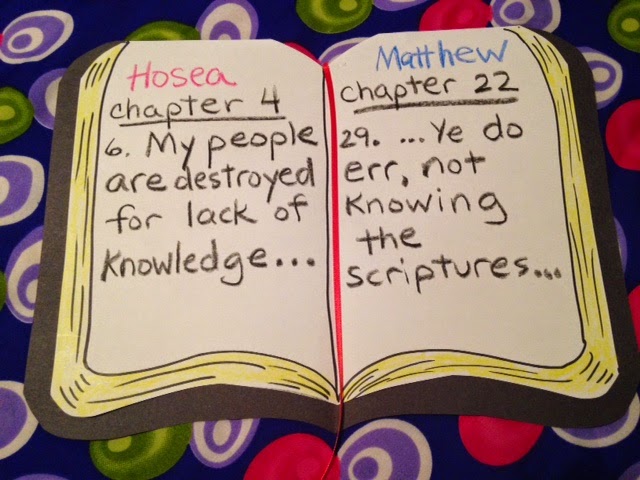 Hosea
chapter 4
6. My people
are destroyed
for lack of
knowledge...
Matthew
chapter 22
29. ...Ye do
err, not
Knowing
the
scriptures...